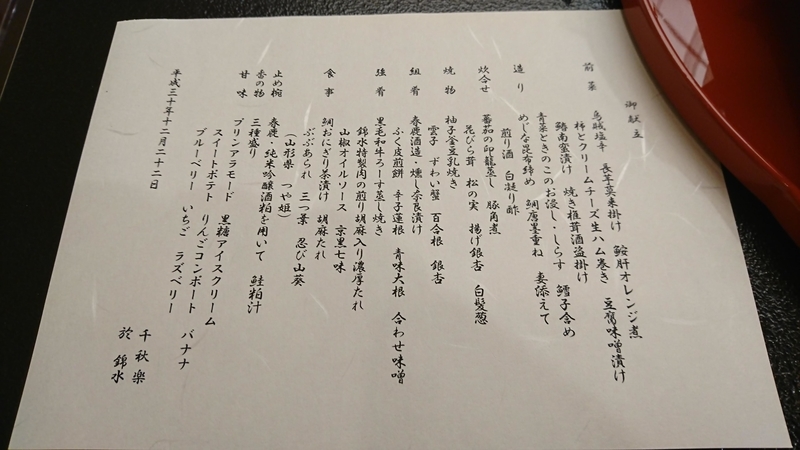 御献立
前菜 烏賊塩辛 長芋茶来掛け 鮟肝オレンジ煮
柿とクリームチーズ生ハム巻き 豆腐味噌漬け
鰆南蛮漬け 焼き椎茸酒盗掛け
青菜ときのこのお浸し・しらす 鱈子含め
造り めじな昆布締め 鯛唐墨重ね 妻添えて
煎り酒 白煎り酢
炊合せ 蕃茄の印籠蒸し 豚角煮
花びら茸 松の実 揚げ銀杏 白髪葱
焼物 柚子釜豆乳焼き
雲子 ずわい蟹 百合根 銀杏
組肴 春鹿酒造・燻し奈良漬け
ふく皮煎餅 辛子蓮根 青味大根 合わせ味噌
強肴 黒毛和牛ろーす蒸し焼き
錦水特製肉の煎り胡麻入り濃厚たれ
山椒オイルソース 京黒七味
食事 鯛おにぎり茶漬け 胡麻たれ
ぶぶあられ 三つ葉 忍び山葵
(山形県 つや姫)
止め椀 春鹿・純米吟醸酒粕を用いて 鮭粕汁
香の物 三種盛り
甘味 プリンアラモード 黒糖アイスクリーム
スイートポテト りんごコンポート バナナ
ブルーベリー いちご ラズベリー
平成三十年十二月二十二日
千秋楽
於 錦水